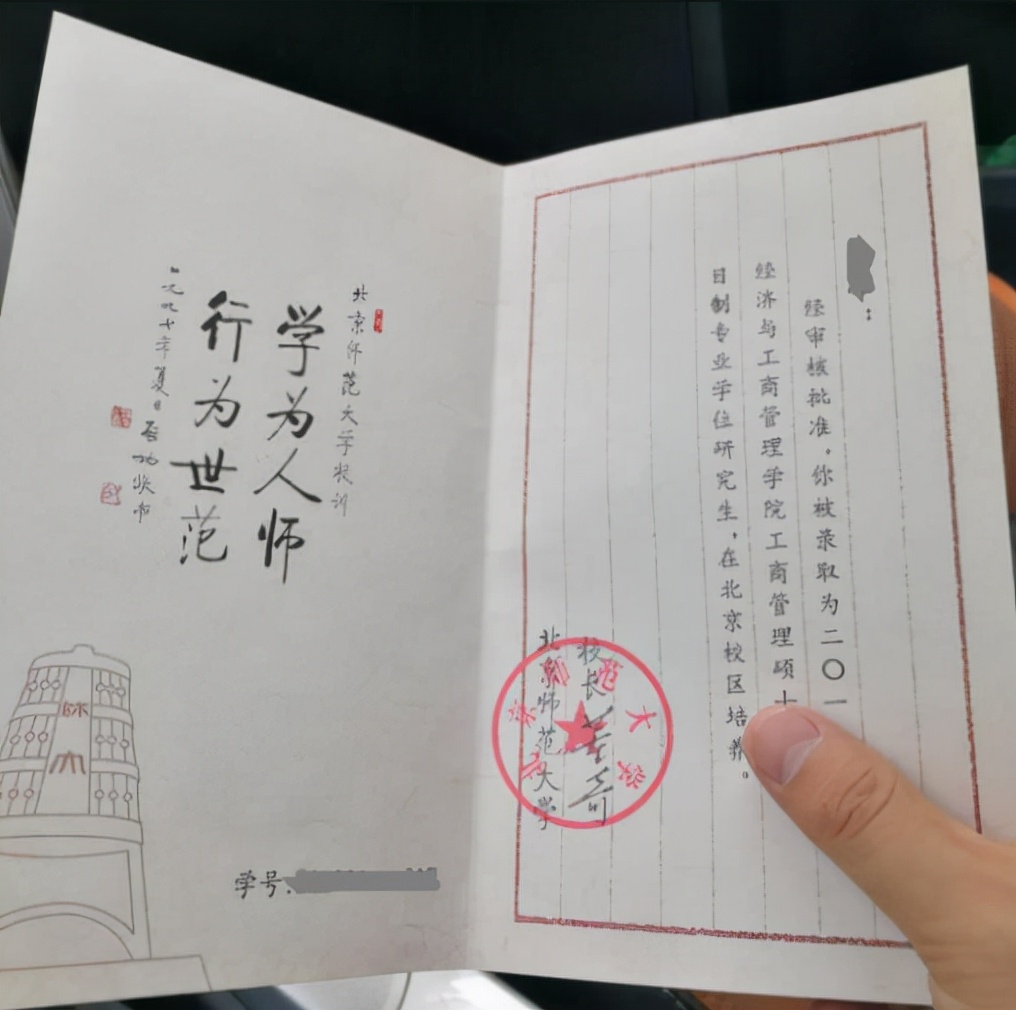 北京师范大学校训
学为人师
行为世范
一九九七年夏日启功
师大
学号:
:
经审核批准，你被录取为二〇一
经济与工商管理学院工商管理硕士
日制专业学位研究生，在北京校区培养。
校长 董奇
北京师范大学
北京师范大学